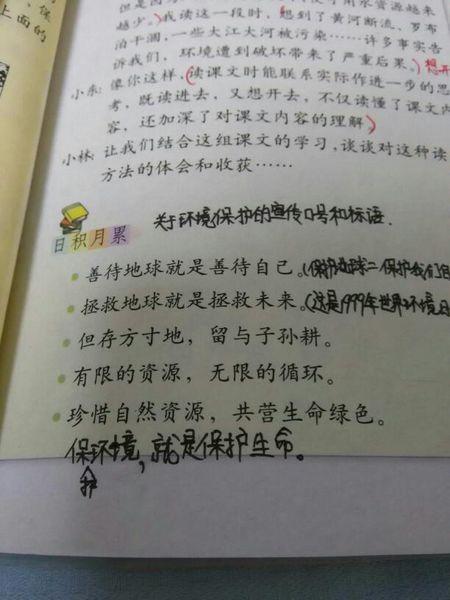 保
上面的
但是因为 用水资源越来
越少。)我读这一段时，想到了黄河断流、罗布
泊干涸，一些大江大河被污染……许多事实告
诉我们，环境遭到破坏带来了严重后果。)想开
小东：像你这样，(读课文时能联系实际作进一步的思
考，既读进去，又想开去，不仅读懂了课文内
容，还加深了对课文内容的理解)
小林：让我们结合这组课文的学习，谈谈对这种读
方法的体会和收获……
关于环境保护的宣传口号和标语.
日积月累
善待地球就是善待自己。(保护地球=保护我们自
拯救地球就是拯救未来。(这是1999年世界环境日
但存方寸地，留与子孙耕。
有限的资源，无限的循环。
珍惜自然资源，共营生命绿色。
保环境，就是保护生命。
护